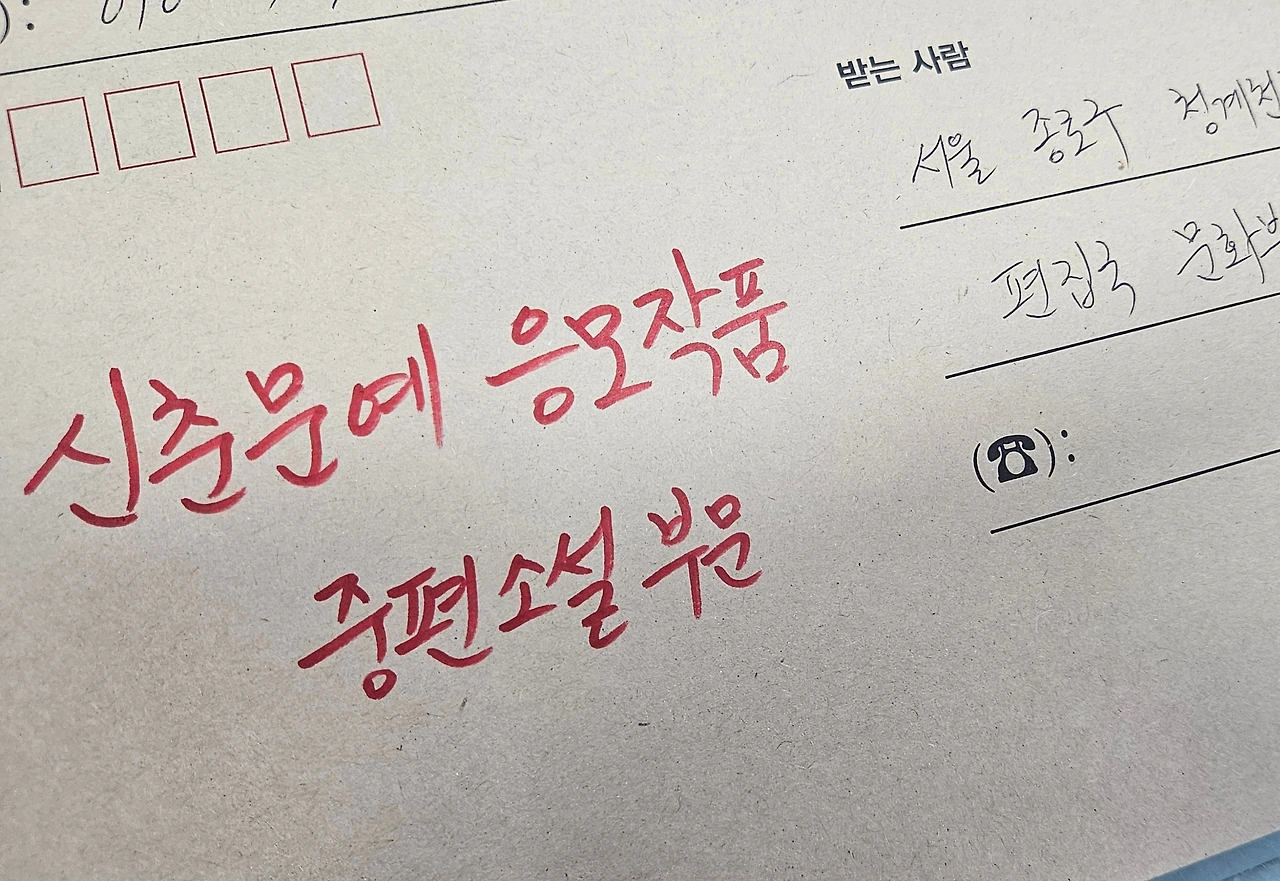 받는 사람
서울 종로구 청계천
편집국 문화부
(☎):
신춘문예 응모작품
중편소설 부문